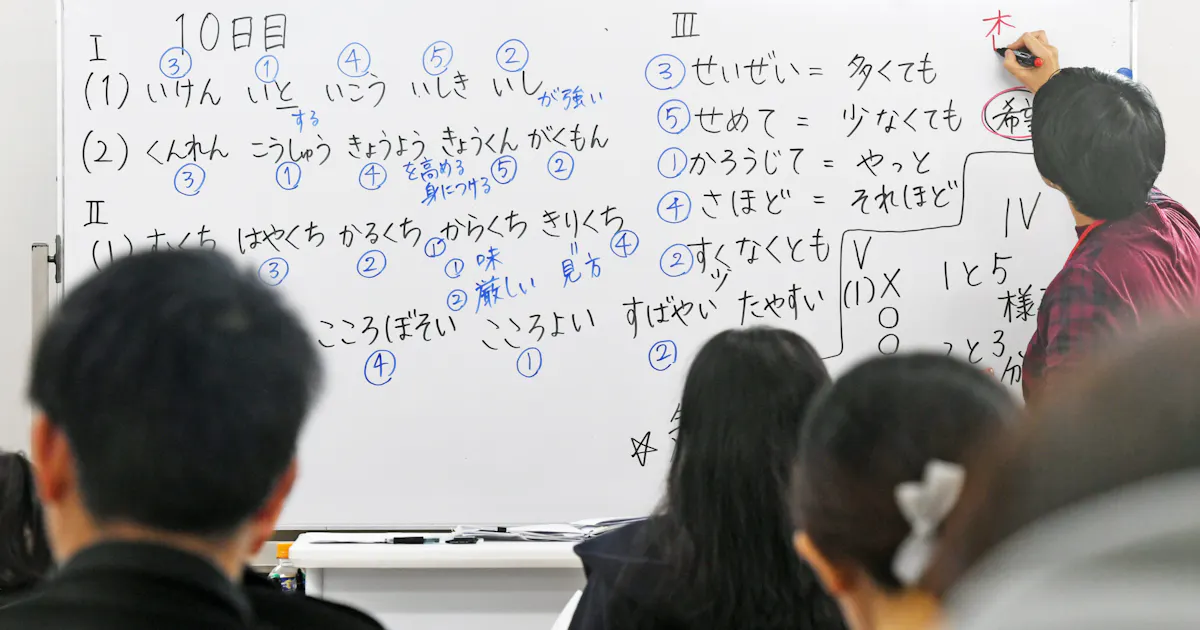 10日目
I
③ ① ④ ⑤ ②
(1) いけん いと いこう いしき いし
する が強い
(2) くんれん こうしゅう きょうよう きょうくん がくもん
③ ① ④ を高める ⑤ ②
身につける
II
(1) むくち はやくち かるくち からくち きりくち
③ ② ① ④
① 味 見方
② 厳しい
こころぼそい こころよい すばやい たやすい
④ ① ②
III
③ せいぜい = 多くても
⑤ せめて = 少なくても
① かろうじて = やっと
④ さほど = それほど
② すくなくとも
木
希望
IV
1と5
様
2と3
分
V
(1) X
○
○
☆